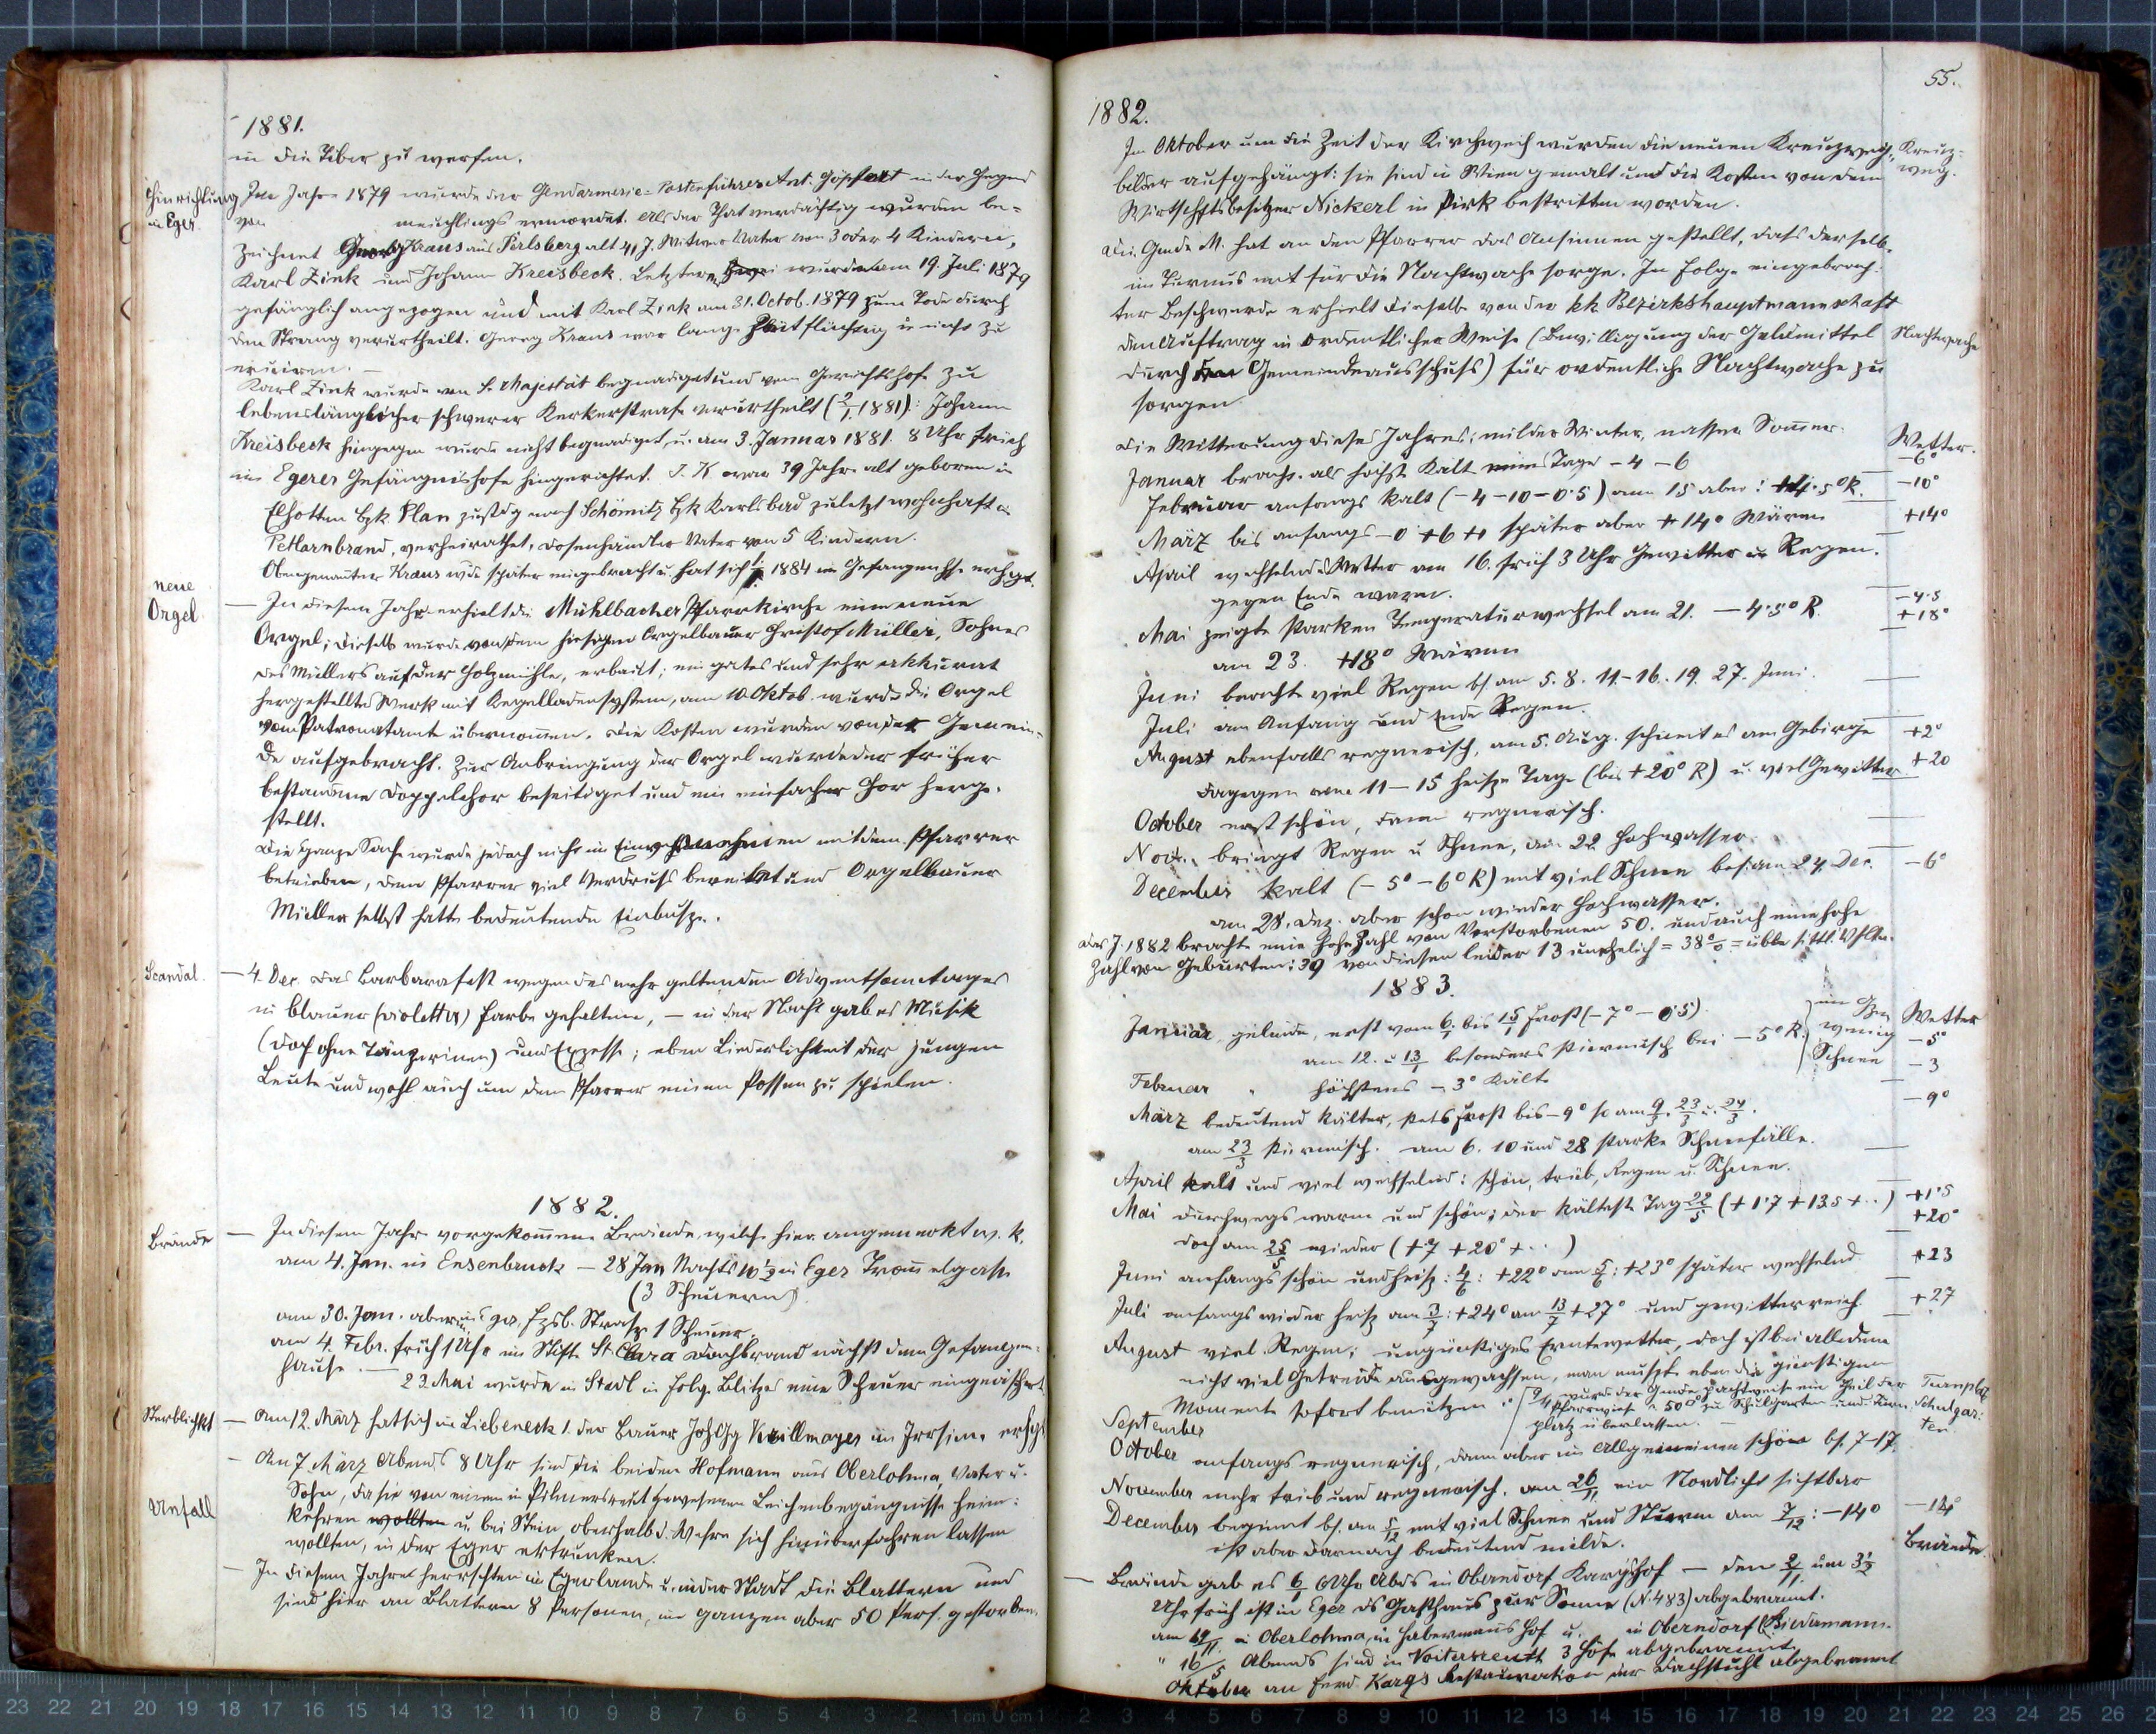 1881.
in die Tiber zu werfen.
Hinrichtung in Eger.
Im Jahre 1879 wurde der Gendarmerie-Postenführer Ant. Göpfert in der Gegend
von meuchlings ermordet. Als der That verdächtig wurden be-
zeichnet Georg Kraus aus Perlsberg alt 41 J. Witwer Vater von 3 oder 4 Kindern,
Karl Zink und Johann Kreisbeck. Letzterer wurde am 19. Juli 1879
gefänglich angezogen und mit Karl Zink am 31. Octob. 1879 zum Tode durch
den Strang verurtheilt. Georg Kraus war lange Zeit flüchtig u. nicht zu
eruiren. —
Karl Zink wurde von S. Majestät begnadiget und vom Gerichtshofe zu
lebenslänglicher schwerer Kerkerstrafe verurtheilt (2/1 1881): Johann
Kreisbeck hingegen wurde nicht begnadiget, u. am 3. Januar 1881. 8 Uhr früh
im Egerer Gefängnishofe hingerichtet. J. K war 39 Jahre alt geboren in
Elhotten Bzk. Plan zustdg nach Schömitz Bzk Karlsbad zuletzt wohnhaft in
Petlarnbrand, verheirathet, Dosenhändler Vater von 5 Kindern.
Obengenannter Kraus wde später eingebracht u. hat sich 1884 im Gefangenhse erhgt.
neue Orgel.
— In diesem Jahre erhielt die Mühlbacher Pfarrkirche eine neue
Orgel; dieselbe wurde von dem hiesigen Orgelbauer Christof Müller, Sohn
des Müllers auf der Holzmühle, erbaut; ein gutes und sehr akkurat
hergestelltes Werk mit Kegelladensystem, am 10. Oktob. wurde die Orgel
vom Patronatamte übernommen. Die Kosten wurden von der Gemein-
de aufgebracht. Zur Anbringung der Orgel wurde der früher
bestandene Doppelchor beseitiget und ein einfacher Chor herge-
stellt.
Die ganze Sache wurde jedoch nicht im Einvernehmen mit dem Pfarrer
betrieben, dem Pfarrer viel Verdruß bereitet und Orgelbauer
Müller selbst hatte bedeutende Einbusze.
Scandal.
— 4. Dec. das Barbarafest wegen des mehr geltenden Adventsonntages
in blauer (violetter) Farbe gehalten, — in der Nacht gab es Musik
(doch ohne Tänzerinen) und Exzesse; eben Liederlichkeit der jungen
Leute und wohl auch um dem Pfarrer einen Possen zu spielen.
1882.
Brände
— In diesem Jahre vorgekommene Brände, welche hier angemerkt w. k.
am 4. Jan. in Ensenbruck — 28 Jan Nachts 10 1/2 in Eger Trommelgasse
(3 Scheuern)
am 30. Jan. aber in Eger, Fzsb. Strasze 1 Scheuer.
am 4. Febr. früh 1 Uhr im Stifte St. Clara Dachbrand nächst dem Gefangen-
hause. — 23 Mai wurde in Stadl in Folge Blitzes eine Scheuer eingeäschert
Sterblichkt
— Am 12. März hat sich in Liebeneck 1. der Bauer Joh Gg Kneillmayer im Irrsinne erhgt
Unfall
— Am 7 März Abends 8 Uhr sind die beiden Hofmann aus Oberlohma, Vater u.
Sohn, da sie von einem in Pilmersreut gewesenen Leichenbegängnisse heim-
kehren wollten u. bei Stein, oberhalb d. Wehre sich hinüberfahren lassen
wollten, in der Eger ertrunken.
— In diesem Jahre herrschten im Egerlande u. in der Stadt die Blattern und
sind hier an Blattern 8 Personen, im ganzen aber 50 Pers. gestorben.
55.
1882.
Im Oktober um die Zeit der Kirchweih wurden die neuen Kreuzweg-
bilder aufgehängt: sie sind in Wien gemalt und die Kosten von dem
Wirtschftsbesitzer Nickerl in Pirk bestritten worden.
Kreuz-
weg.
Die Gmde M. hat an den Pfarrer das Ansinnen gestellt, daß derselbe
im Turnus mit für die Nachtwache sorge. In Folge eingebrach-
ter Beschwerde erhielt dieselbe von der kk Bezirkshauptmannschaft
den Auftrag in ordentlicher Weise (Bewilligung der Geldmittel
durch den Gemeindeausschuß) für ordentliche Nachtwache zu
sorgen
Nachtwache
Die Witterung dieses Jahres: milder Winter, nasser Sommer.
Wetter.
Januar brachte als höchste Kälte einige Tage -4 -6
-6°
Februar anfangs kalt (-4-10-0·5) am 15 aber: +4·5° R.
-10°
März bis anfangs -0 +6 ++ später aber +14° Wärme
+14°
April wechselndes Wetter am 16. früh 3 Uhr Gewitter u. Regen.
gegen Ende warm.
Mai zeigte starken Temperaturwechsel am 21. — 4·5° R.
-4·5
am 23. +18° Wärme
+18°
Juni brachte viel Regen bs. am 5. 8. 11.-16. 19. 27. Juni.
Juli am Anfang und Ende Regen.
August ebenfalls regnerisch, am 5. Aug. schneit es am Gebirge
+2°
dagegen vom 11—15 heisze Tage (bis +20° R) u. viel Gewitter
+20
October erst schön, dann regnerisch.
Nov. bringt Regen u Schnee, am 22 Hochwasser.
December kalt (-5° -6° R) mit viel Schnee bes. am 24. Dec.
-6°
am 28. Dez. aber schon wieder Hochwasser.
Das J. 1882 brachte eine hohe Zahl von Verstorbenen 50. und auch eine hohe
Zahl von Geburten: 39 von diesen leider 13 unehelich = 38% = üble sittl. Vhltn.
1883.
Januar, gelinde, erst vom 6. bis 15/1 Frost (-7° -0·5)
am 12. u 13/1 besonders stürmisch bei -5° R.
im Gzn
wenig
Schnee
Wetter
-5°
Februar " höchstens -3° Kälte
-3
März bedeutend kälter, stets Frost bis -9° so am 9/3. 23/3 u. 24/3.
-9°
am 23/3 stürmisch. am 6. 10 und 28 starke Schneefälle.
April kalt und viel wechselnd: schön, trüb, Regen u. Schnee.
Mai durchwegs warm und schön; der kälteste Tag 22/5 (+1·7 +13.5 +..)
+1·5
doch am 25/5 wieder (+7 +20° +..)
+20°
Juni anfangs schön und heisz: 4/6: +22° am 5/6: +23° später wechselnd
+23
Juli anfangs wieder heisz am 3/7: +24° am 13/7 +27° und gewitterreich.
+27
August viel Regen; ungünstiges Erntewetter, doch ist bei alledem
nicht viel Getreide ausgewachsen, man muszte eben die günstigen
Momente sofort benützen.
September
wurde der Gmde pachtweise ein Theil der
Pfarrwiese zu Schulgarten und Turn-
platz überlassen. —
Turnplatz
Schulgar-
ten
October anfangs regnerisch, dann aber im Allgemeinen schön bs. 7-17.
November mehr trüb und regnerisch. am 26/11 ein Nordlicht sichtbar
December beginnt bs. am 5/12 mit viel Schnee und Sturm am 7/12: -14°
-14°
ist aber darnach bedeutend milde.
Brände.
— Brände gab es 6/1 6 Uhr Abds in Oberndorf Kargshof — den 2/11. um 3 1/2
Uhr früh ist in Eger ds Gasthaus zur Sonne (N. 483) abgebrannt.
am 19/11. in Oberlohma, in Habermanns Hof u. in Oberndorf (Biedermann.
" 16/5 Abends sind in Voitersreuth 3 Höfe abgebrannt
Oktober an Ferd. Kargs Restauration der Dachstuhl abgebrannt